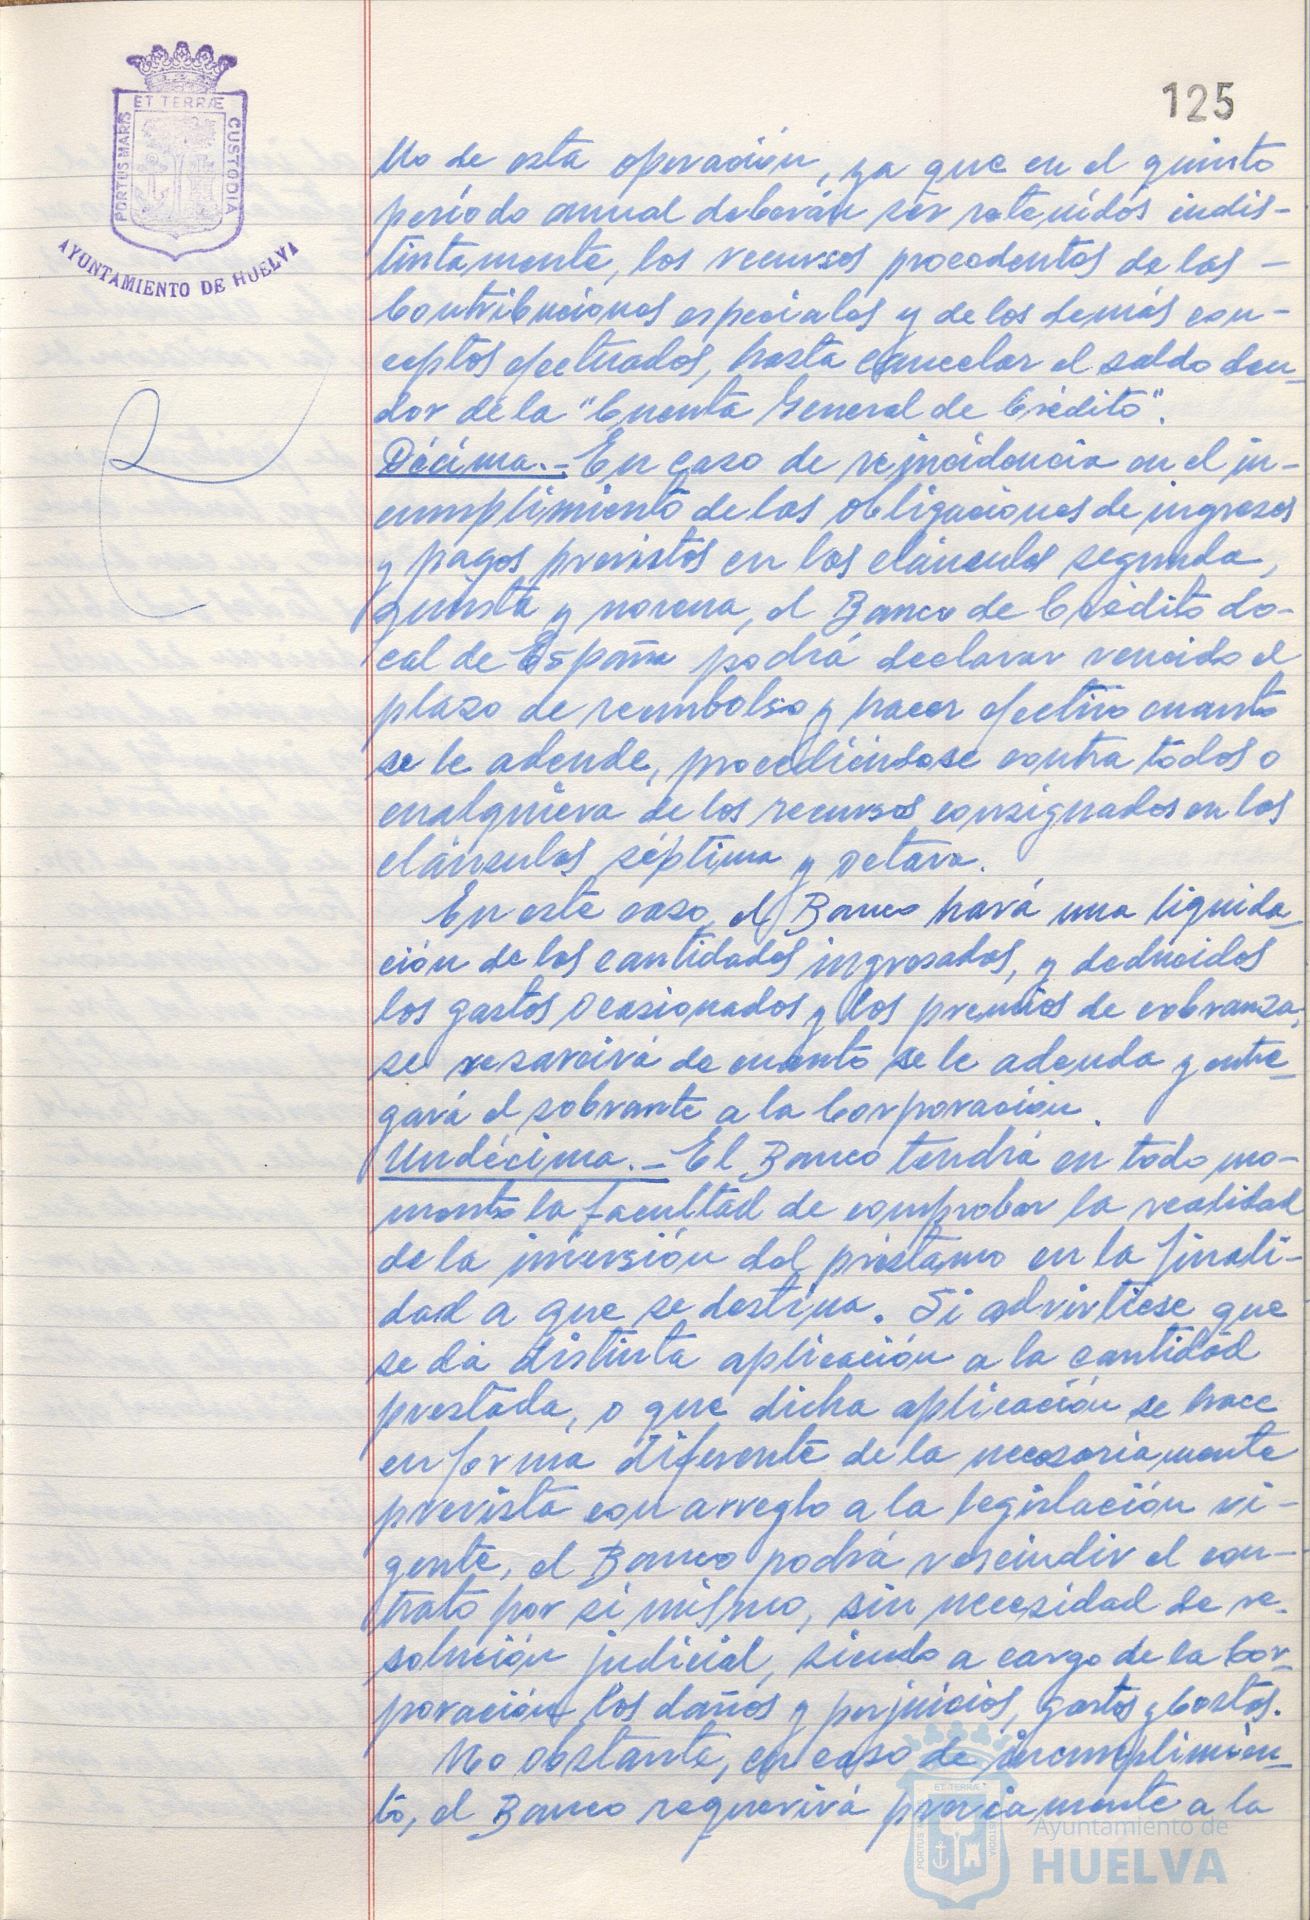 ET TERRÆ
PORTUS MARIS
CUSTODIA
AYUNTAMIENTO DE HUELVA
125
llo de esta operación, ya que en el quinto
período anual deberán ser retenidos indis-
tintamente, los recursos procedentes de las -
Contribuciones especiales y de los demás con-
ceptos efectuados, hasta cancelar el saldo deu-
dor de la "Cuenta General de Crédito".
Décima.- En caso de reincidencia en el in-
cumplimiento de las obligaciones de ingresos
y pagos previstos en las cláusulas segunda,
quinta y novena, el Banco de Crédito Lo-
cal de España podrá declarar vencido el
plazo de reembolso y hacer efectivo cuanto
se le adeude, procediéndose contra todos o
cualquiera de los recursos consignados en las
cláusulas séptima y octava.
En este caso, el Banco hará una liquida-
ción de las cantidades ingresadas, y deducidos
los gastos ocasionados y los premios de cobranza,
se resarcirá de cuanto se le adeuda y entre-
gará el sobrante a la Corporación.
Undécima.- El Banco tendrá en todo mo-
mento la facultad de comprobar la realidad
de la inversión del préstamo en la finali-
dad a que se destina. Si advirtiese que
se dá distinta aplicación a la cantidad
prestada, o que dicha aplicación se hace
en forma diferente de la necesariamente
prevista con arreglo a la legislación vi-
gente, el Banco podrá rescindir el con-
trato por sí mismo, sin necesidad de re-
solución judicial, siendo a cargo de la Cor-
poración los daños y perjuicios, gastos y costas.
No obstante, en caso de incumplimien-
to, el Banco requerirá previamente a la
ET TERRÆ
Ayuntamiento de
HUELVA